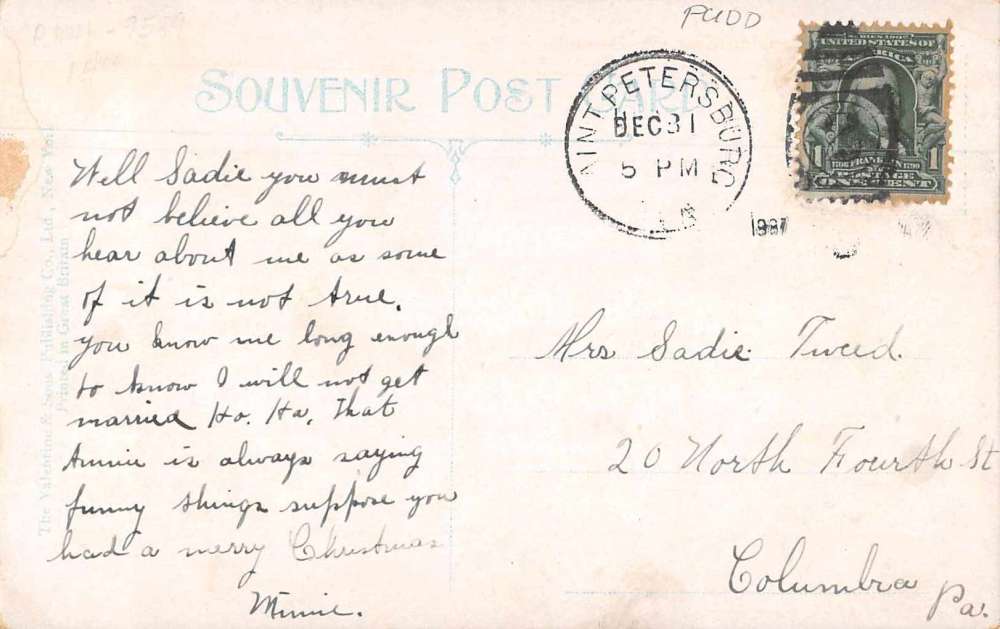 PUDD
SOUVENIR POST CARD
AINT PETERSBURG
DEC 31
5 PM
1907
SERIES 1902
UNITED STATES OF
AMERICA
1 1706 FRANKLIN 1790 1
POSTAGE
ONE CENT
The Valentine & Sons Publishing Co., Ltd., New York
Printed in Great Britain
Well Sadie you must
not believe all you
hear about me as some
of it is not true.
you know me long enough
to know I will not get
married Ho. Ha. That
Annie is always saying
funny things suppose you
had a merry Christmas
Minnie.
Mrs Sadie Tweed.
20 North Fourth St
Columbia
Pa.